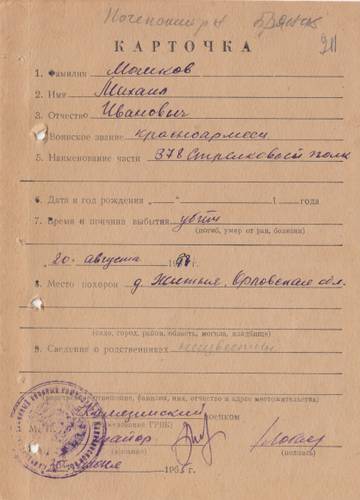 Брянск
КАРТОЧКА
1. Фамилия Мошков
2. Имя Михаил
3. Отчество Иванович
Воинское звание красноармеец
5. Наименование части 378 Стрелковый полк
6. Дата и год рождения „ “ 1 года
7. Время и причина выбытия убит
(погиб, умер от ран, болезни)
„20“ августа 194 г.
8. Место похорон д. Житня, Орловская обл.
(село, город, район, область, могила, кладбище)
9. Сведения о родственниках неизвестны
(родственные отношение, фамилия, имя, отчество и адрес местожительства)
военком
майор
(подпись)
196 г.